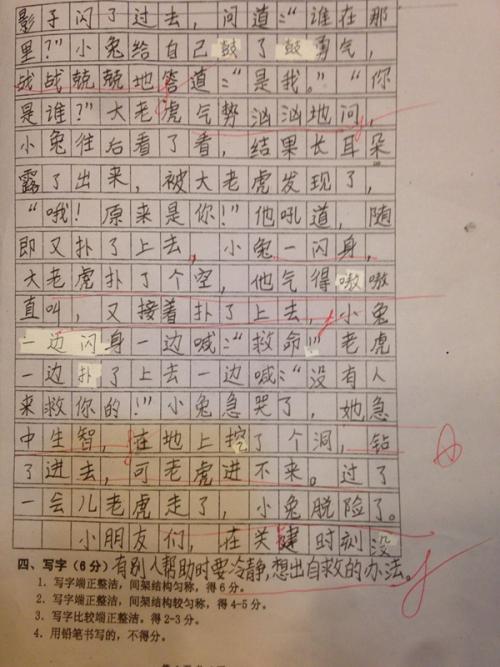 影子闪了过去，问道：“谁在那
里？”小兔给自己鼓了鼓勇气，
战战兢兢地答道：“是我。”“你
是谁？”大老虎气势汹汹地问，
小兔往后看了看，结果长耳朵
露了出来，被大老虎发现了，
“哦！原来是你！”他吼道，随
即又扑了上去，小兔一闪身，
大老虎扑了个空，他气得嗷嗷
直叫，又接着扑了上去，小兔
一边闪身一边喊：“救命”老虎
一边扑了上去一边喊：“没有人
来救你的！”小兔急哭了，她急
中生智，在地上挖了个洞，钻
了进去，可老虎进不来。过了
一会儿老虎走了，小兔脱险了。
小朋友们，在关键时刻没
有别人帮助时要冷静，想出自救的办法。
四、写字（6分）
1. 写字端正整洁，间架结构匀称，得6分。
2. 写字端正整洁，间架结构较匀称，得4-5分。
3. 写字比较端正整洁，得2-3分。
4. 用铅笔书写的，不得分。